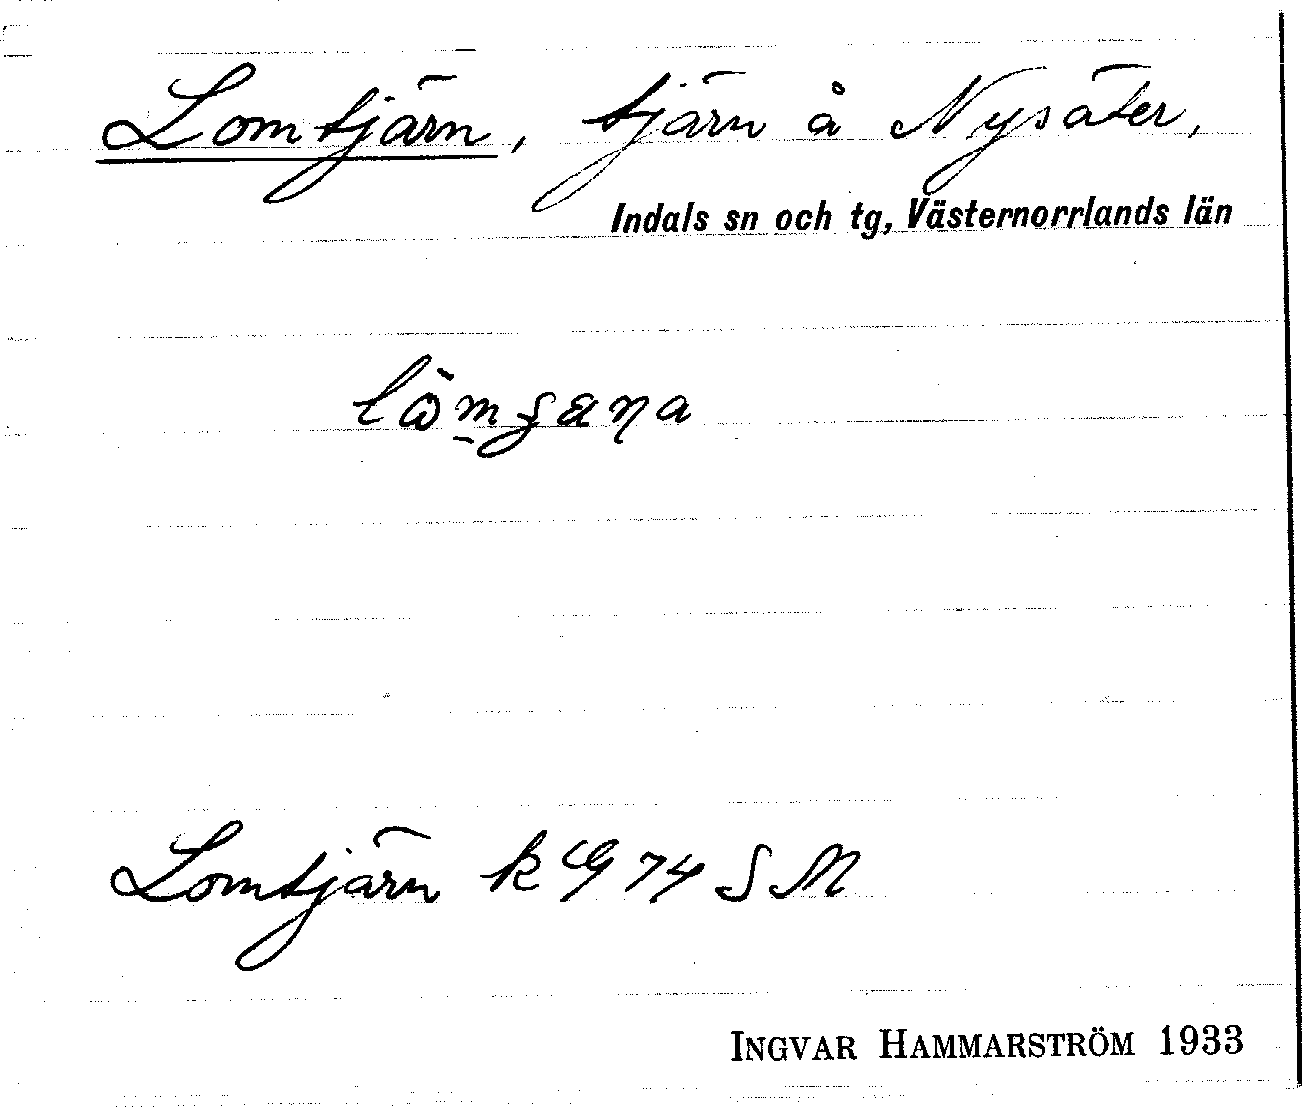 Lomtjärn, tjärn å Nysäter,
Indals sn och tg, Västernorrlands län
Lomtjärn k G 74 SM
INGVAR HAMMARSTRÖM 1933